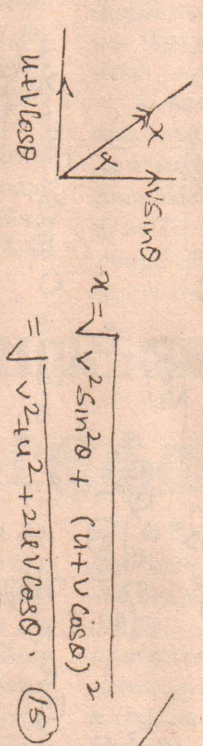 x
α
VSinθ
u+VCosθ
x = √(V²Sin²θ + (u+VCosθ)²)
= √(V²+u²+2uVCosθ).
15